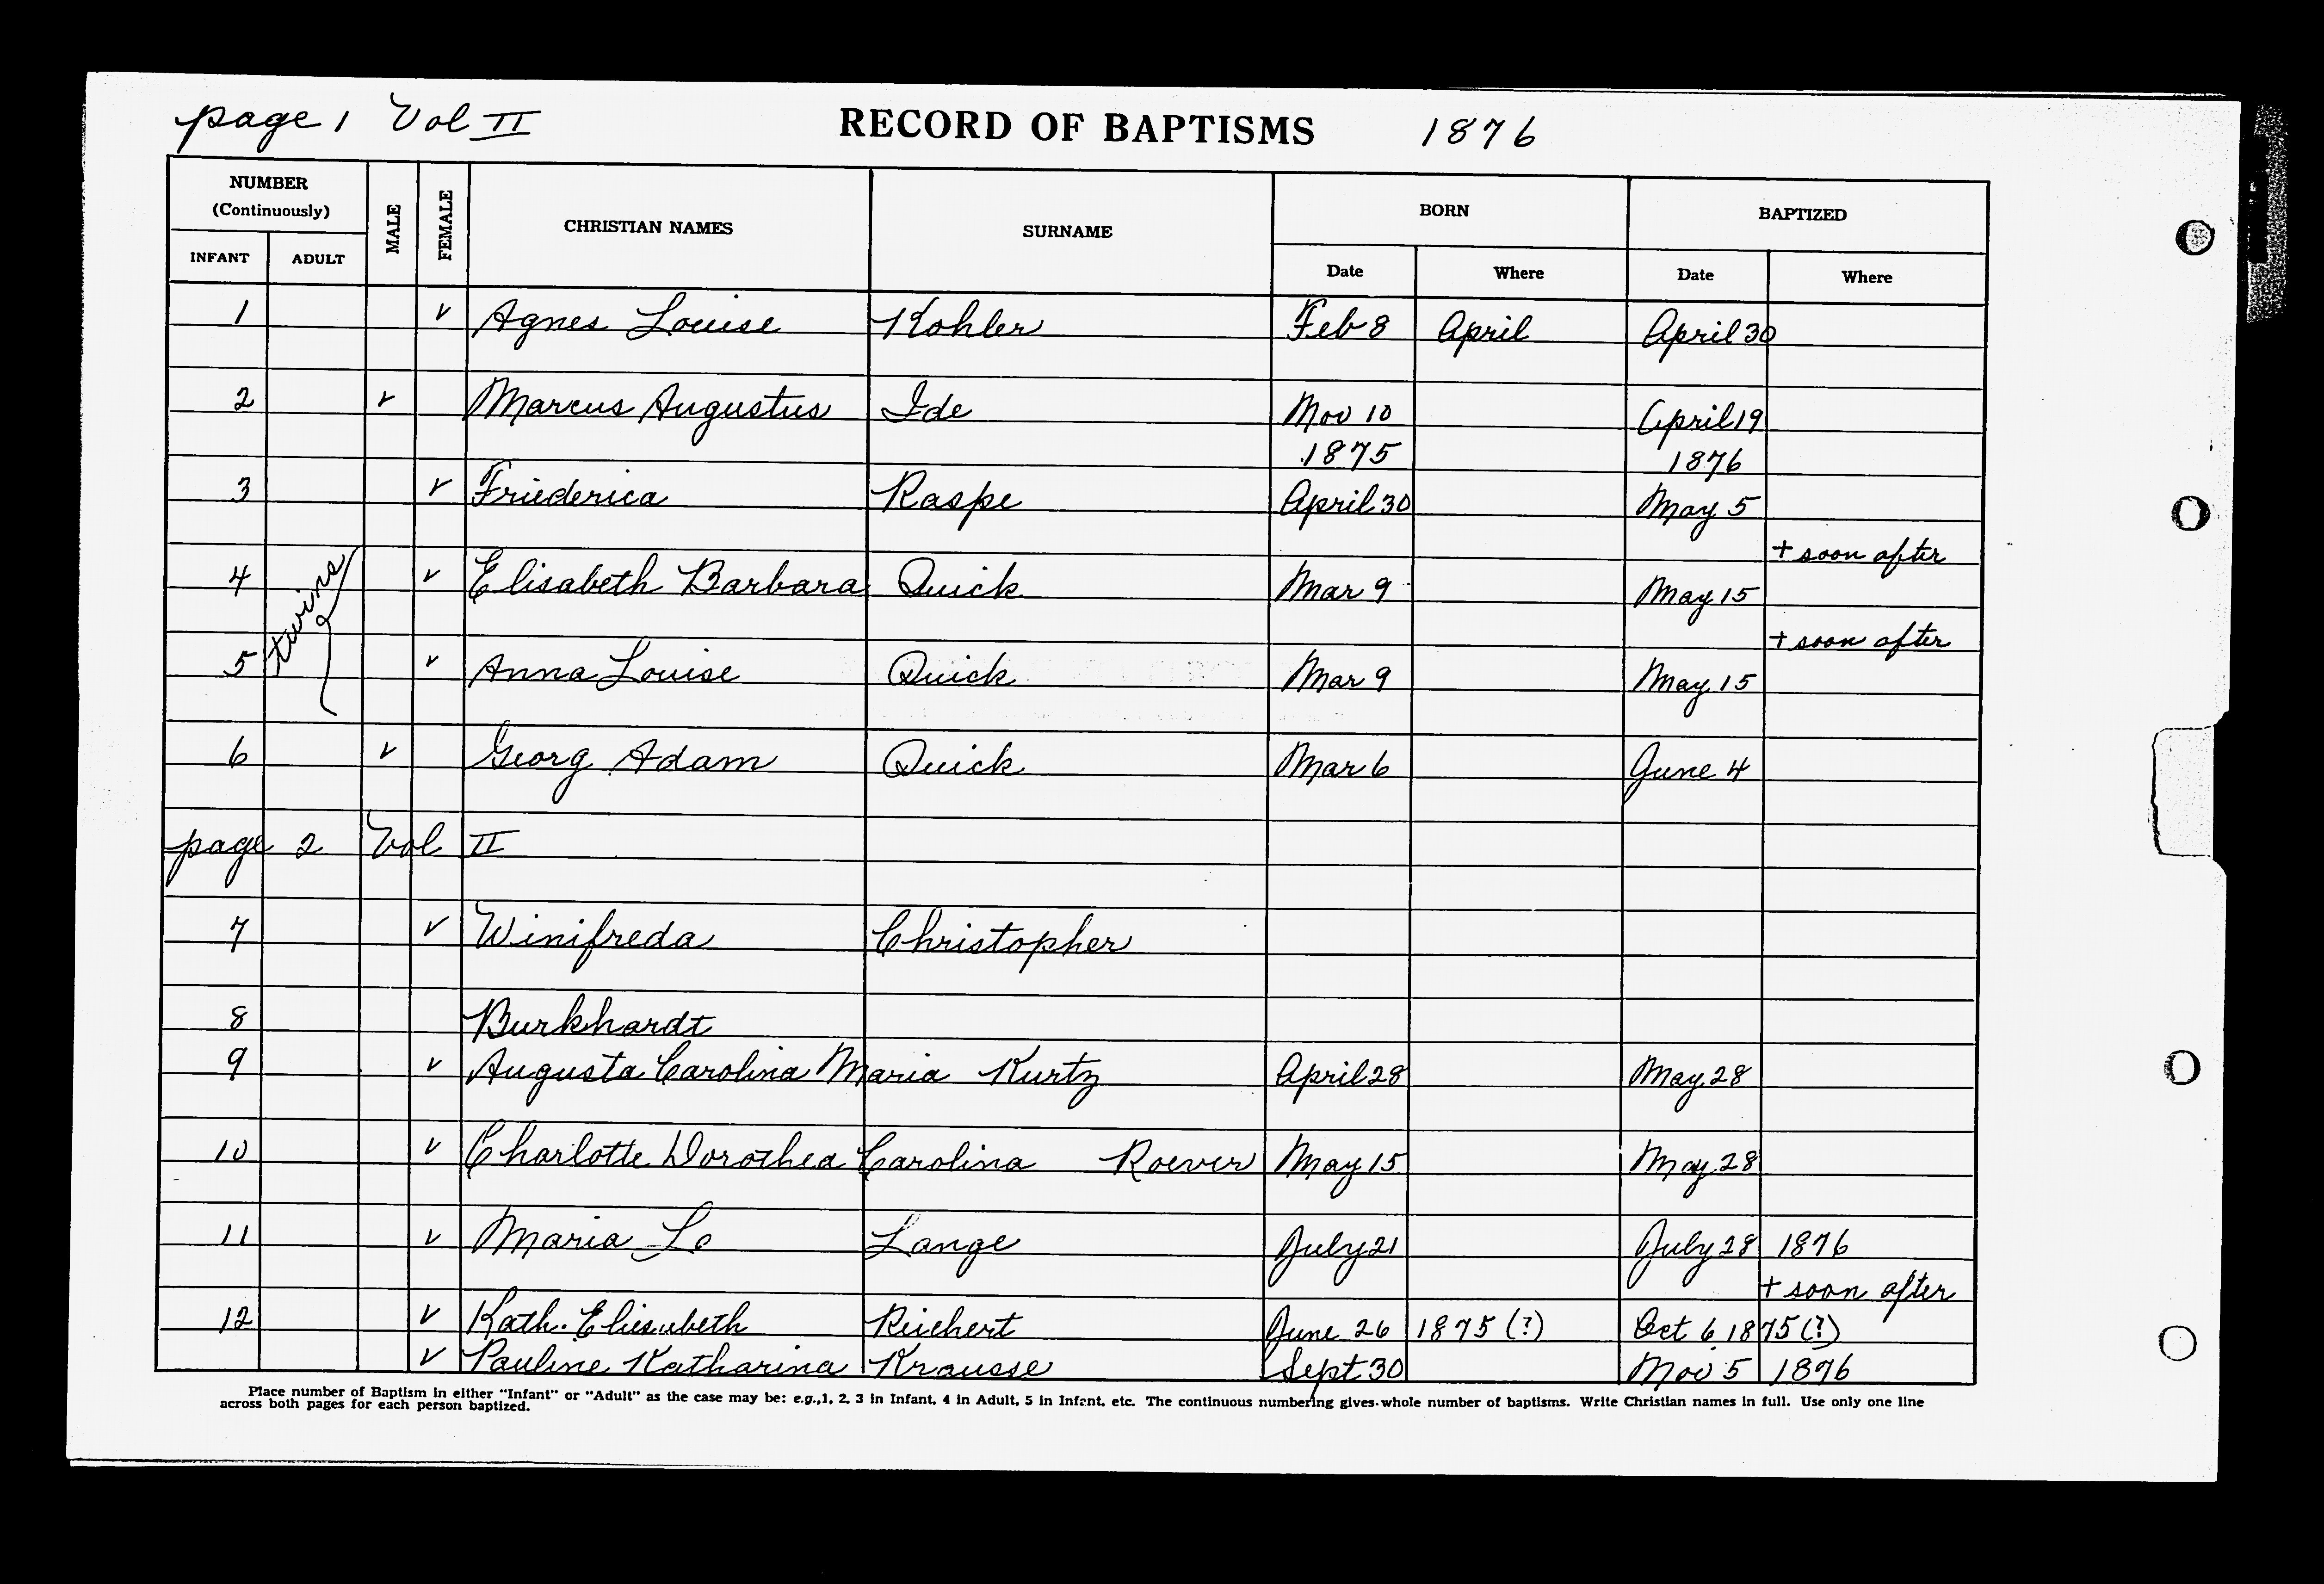 page 1 Vol II RECORD OF BAPTISMS 1876
NUMBER (Continuously) MALE FEMALE CHRISTIAN NAMES SURNAME BORN BAPTIZED
INFANT ADULT Date Where Date Where
1 ✓ Agnes Louise Kohler Feb 8 April April 30
2 ✓ Marcus Augustus Ide Nov 10 April 19
1875 1876
3 ✓ Friederica Raspe April 30 May 5
+ soon after
4 twins ✓ Elisabeth Barbara Quick Mar 9 May 15
+ soon after
5 ✓ Anna Louise Quick Mar 9 May 15
6 ✓ Georg Adam Quick Mar 6 June 4
page 2 Vol II
7 ✓ Winifreda Christopher
8 Burkhardt
9 ✓ Augusta Carolina Maria Kurtz April 28 May 28
10 ✓ Charlotte Dorothea Carolina Roever May 15 May 28
11 ✓ Maria Lo Lange July 21 July 28 1876
+ soon after
12 ✓ Kath. Elisabeth Reichert June 26 1875 (?) Oct 6 1875 (?)
✓ Pauline Katharina Krausse Sept 30 Nov 5 1876
Place number of Baptism in either "Infant" or "Adult" as the case may be: e.g., 1, 2, 3 in Infant, 4 in Adult, 5 in Infant, etc. The continuous numbering gives whole number of baptisms. Write Christian names in full. Use only one line
across both pages for each person baptized.